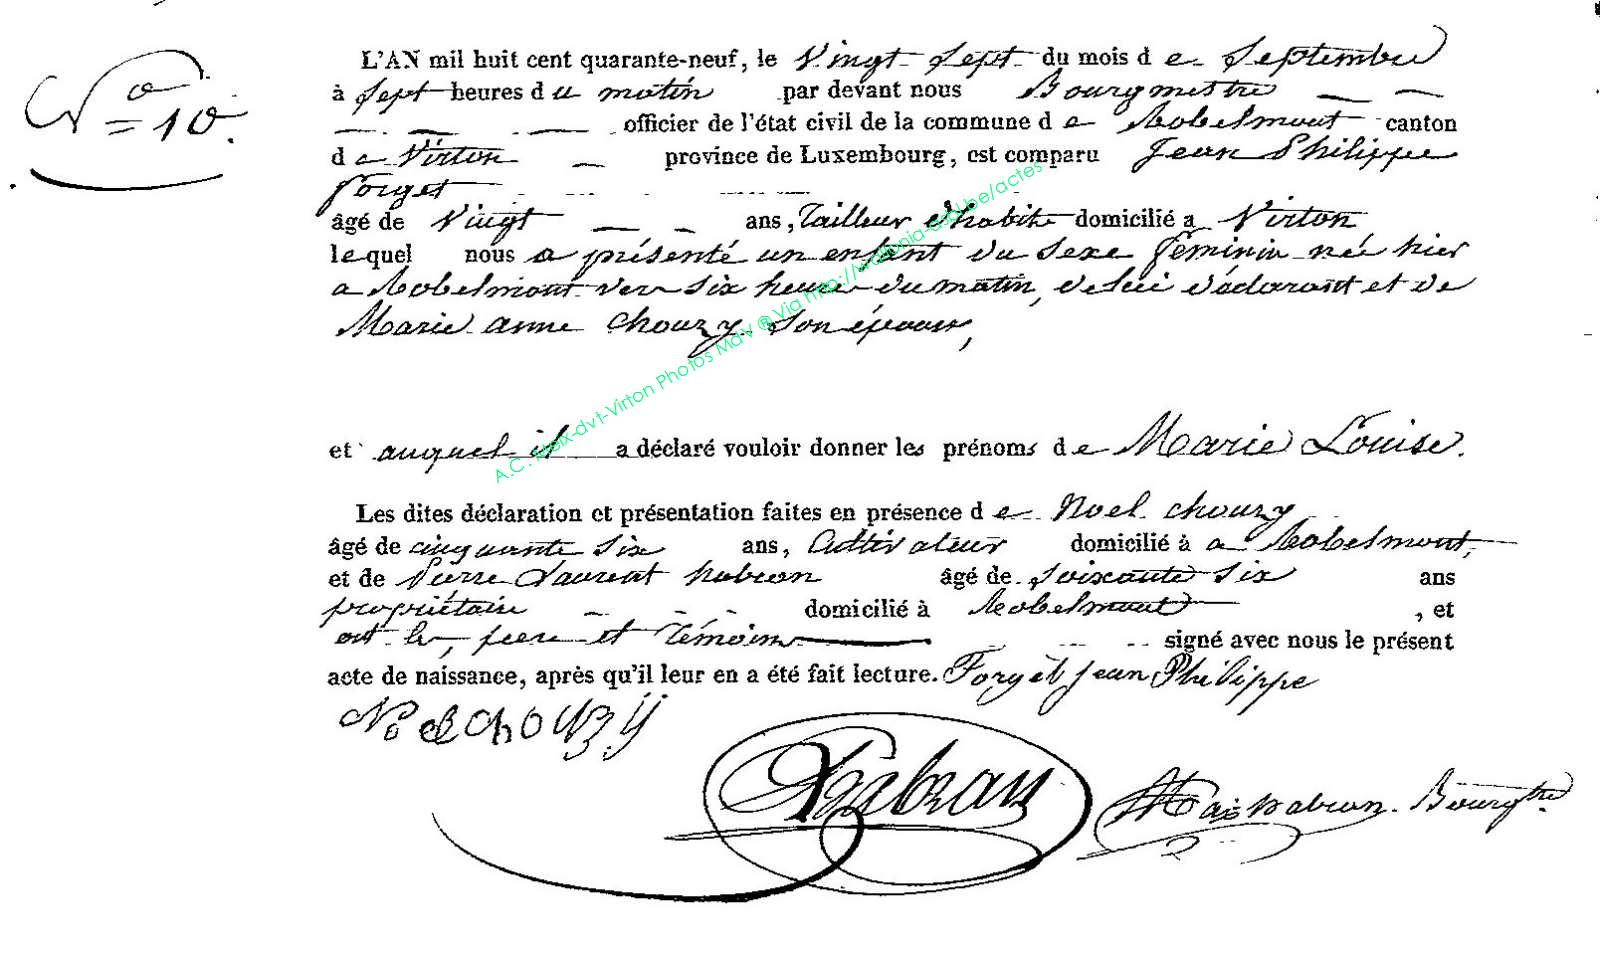 N° = 10.
L'AN mil huit cent quarante-neuf, le Vingt Sept du mois d e Septembre
à Sept heures d u matin par devant nous Bourgmestre
officier de l'état civil de la commune d e Robelmont canton
d e Virton province de Luxembourg, est comparu Jean Philippe
Forget
âgé de Vingt ans, Tailleur d'habits domicilié a Virton
lequel nous a présenté un enfant du Sexe féminin née hier
a Robelmont vers Six heures du matin, de lui déclarant et de
Marie anne Chouzy Son épouse,
et auquel il a déclaré vouloir donner les prénoms d e Marie Louise.
Les dites déclaration et présentation faites en présence d e Noel chouzy
âgé de cinquante Six ans, Cultivateur domicilié à a Robelmont,
et de Pierre Laurent habran âgé de Soixante Six ans
propriétaire domicilié à Robelmont , et
ont les, pere et témoins signé avec nous le présent
acte de naissance, après qu'il leur en a été fait lecture. Forget Jean Philippe
Noel Chouzy
Habran
habran Bourgtre.
A.C. Meix-dvt-Virton Photos MdV ® Via http://wallonia-asbl.be/actes